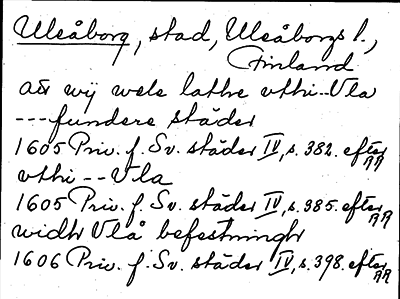 Uleåborg, stad, Uleåborgs l.,
Finland
att wij wele lathe vthi--Vla
---fundere städer
1605 Priv. f. Sv. städer IV, s. 382. efter RR
vthi--Vla
1605 Priv. f. Sv. städer IV, s. 385. efter RR
widh Vlå befestningh
1606 Priv. f. Sv. städer IV, s. 398. efter RR